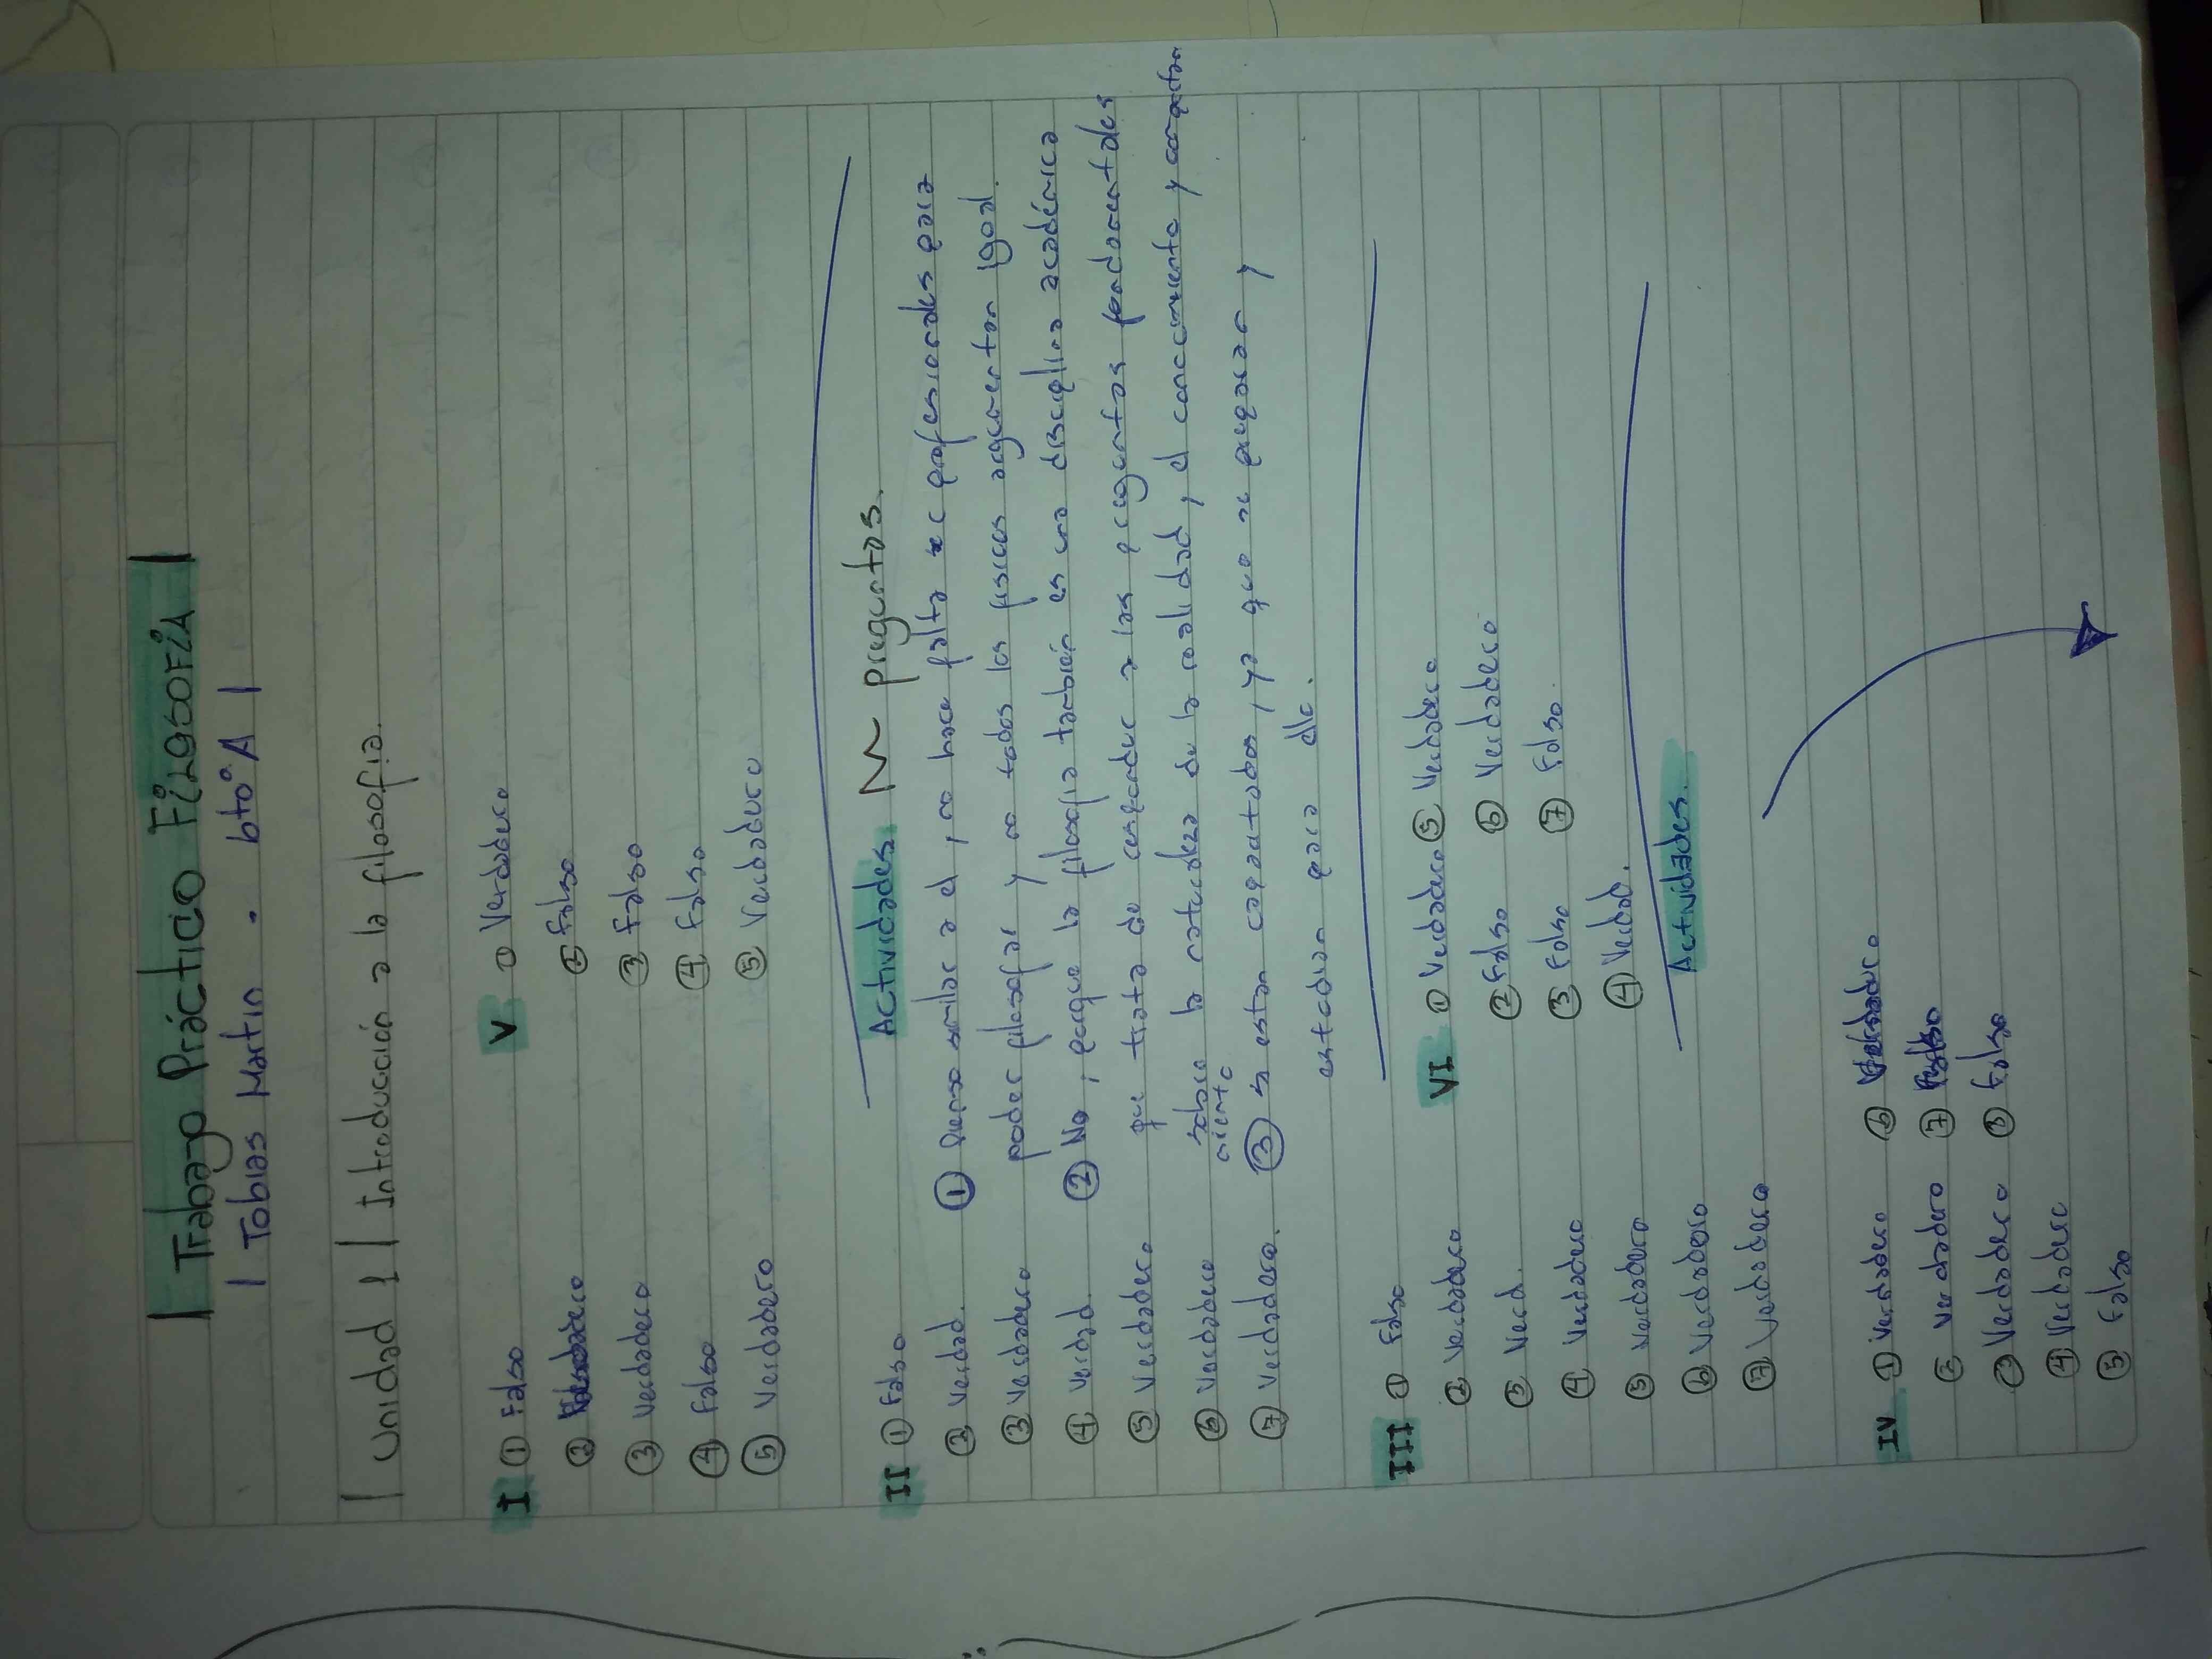 Trabajo Práctico Filosofía
Tobias Martin - 6to°A
Unidad 1 | Introducción a la filosofia.
I ① Falso
②
③ Verdadero
④ Falso
⑤ Verdadero
II ① Falso
② Verdad.
③ Verdadero
④ Verdad.
⑤ Verdadero
⑥ Verdadero
⑦ Verdadero.
III ① Falso
② Verdadero
③ Verd.
④ Verdadero
⑤ Verdadero
⑥ Verdadero
⑦ Verdadero
IV ① Verdadero
② Verdadero
③ Verdadero
④ Verdadero
⑤ Falso
⑥ Verdadero
⑦ Falso
⑧ Falso
V ① Verdadero
② Falso
③ Falso
④ Falso
⑤ Verdadero
Actividades. ~ preguntas.
① pienso similar a el, no hace falta ser profesionales para
poder filosofar y no todos los fisicos argumentan igual.
② No, porque la filosofia también es una disciplina académica
que trata de responder a las preguntas fundamentales
sobre la naturaleza de la realidad, el conocimiento y
③ si estan capacitados, ya que se preparan y
estudian para ello.
VI ① Verdadero ⑤ Verdadero
② Falso ⑥ Verdadero
③ Falso ⑦ Falso.
④ Verdad.
Actividades.